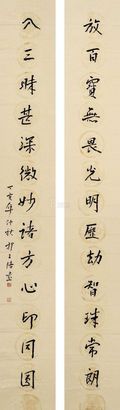 放百寶無畏光明歷劫智珠常朗
入三昧甚深微妙諸方心印同圓
丁亥年仲秋